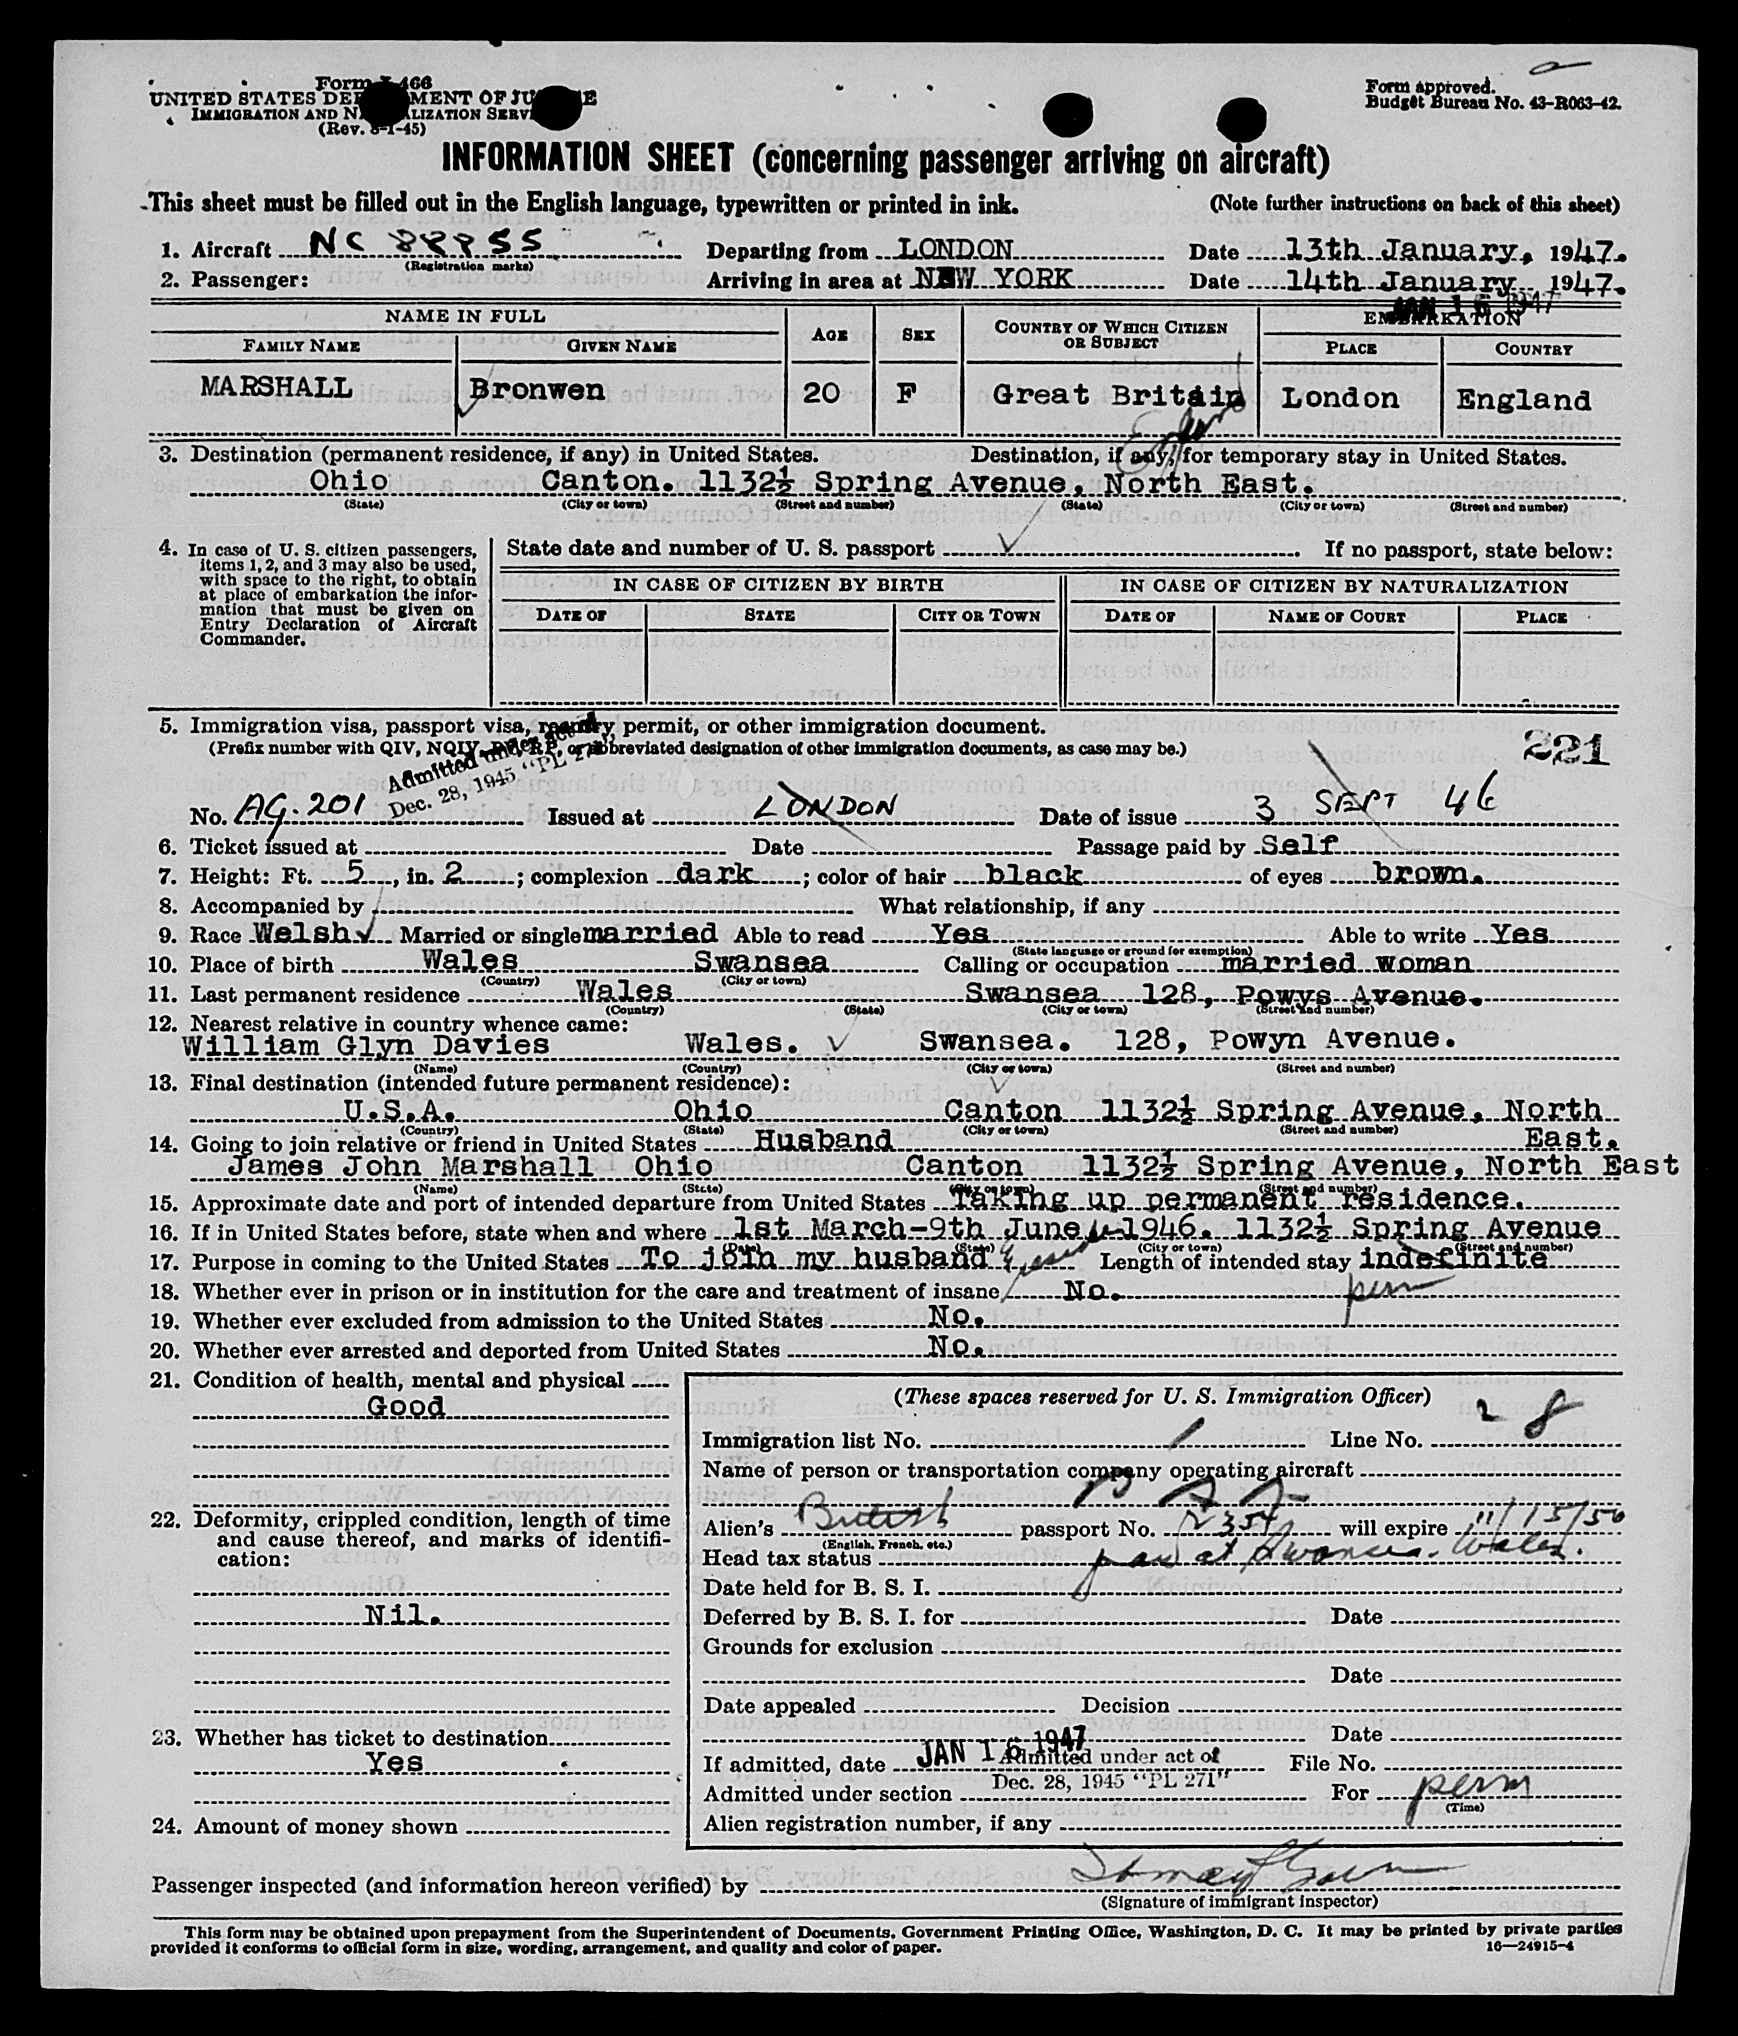 Form I-466
UNITED STATES DEPARTMENT OF JUSTICE
IMMIGRATION AND NATURALIZATION SERVICE
(Rev. 8-1-45)
Form approved.
Budget Bureau No. 43-R063-42.
INFORMATION SHEET (concerning passenger arriving on aircraft)
This sheet must be filled out in the English language, typewritten or printed in ink. (Note further instructions on back of this sheet)
1. Aircraft NC 88855 Departing from LONDON Date 13th January, 1947.
(Registration marks)
2. Passenger: Arriving in area at NEW YORK Date 14th January 1947.
JAN 16 1947
NAME IN FULL AGE SEX COUNTRY OF WHICH CITIZEN OR SUBJECT EMBARKATION
FAMILY NAME GIVEN NAME PLACE COUNTRY
MARSHALL Bronwen 20 F Great Britain London England
3. Destination (permanent residence, if any) in United States. Destination, if any, for temporary stay in United States.
Ohio Canton. 1132½ Spring Avenue, North East.
(State) (City or town) (Street and number) (State) (City or town) (Street and number)
4. In case of U. S. citizen passengers, items 1, 2, and 3 may also be used, with space to the right, to obtain at place of embarkation the information that must be given on Entry Declaration of Aircraft Commander.
State date and number of U. S. passport If no passport, state below:
IN CASE OF CITIZEN BY BIRTH IN CASE OF CITIZEN BY NATURALIZATION
DATE OF STATE CITY OR TOWN DATE OF NAME OF COURT PLACE
5. Immigration visa, passport visa, reentry permit, or other immigration document.
(Prefix number with QIV, NQIV, PV, RP, or abbreviated designation of other immigration documents, as case may be.) 221
Admitted under act of
Dec. 28, 1945 "PL 271"
No. AG. 201 Issued at LONDON Date of issue 3 SEPT 46
6. Ticket issued at Date Passage paid by Self
7. Height: Ft. 5, in. 2; complexion dark; color of hair black of eyes brown.
8. Accompanied by What relationship, if any
9. Race Welsh Married or single married Able to read Yes Able to write Yes
(State language or ground for exemption)
10. Place of birth Wales Swansea Calling or occupation married woman
(Country) (City or town)
11. Last permanent residence Wales Swansea 128, Powys Avenue.
(Country) (State) (City or town) (Street and number)
12. Nearest relative in country whence came:
William Glyn Davies Wales. Swansea. 128, Powyn Avenue.
(Name) (Country) (City or town) (Street and number)
13. Final destination (intended future permanent residence):
U.S.A. Ohio Canton 1132½ Spring Avenue, North East.
(Country) (State) (City or town) (Street and number)
14. Going to join relative or friend in United States Husband
James John Marshall Ohio Canton 1132½ Spring Avenue, North East
(Name) (State) (City or town) (Street and number)
15. Approximate date and port of intended departure from United States Taking up permanent residence.
16. If in United States before, state when and where 1st March-9th June 1946. 1132½ Spring Avenue
(Date) (State) (City or town) (Street and number)
17. Purpose in coming to the United States To join my husband Length of intended stay indefinite
perm
18. Whether ever in prison or in institution for the care and treatment of insane No.
19. Whether ever excluded from admission to the United States No.
20. Whether ever arrested and deported from United States No.
21. Condition of health, mental and physical
Good
22. Deformity, crippled condition, length of time and cause thereof, and marks of identification:
Nil.
23. Whether has ticket to destination
Yes
24. Amount of money shown
(These spaces reserved for U. S. Immigration Officer)
Immigration list No. 1 Line No. 2 8
Name of person or transportation company operating aircraft
Alien's British passport No. will expire 11/15/50
(English, French, etc.)
Head tax status at Swansea. Wales.
Date held for B. S. I.
Deferred by B. S. I. for Date
Grounds for exclusion
Date
Date appealed Decision
Date
If admitted, date JAN 16 1947 File No.
Admitted under act of
Dec. 28, 1945 "PL 271"
Admitted under section For perm
(Time)
Alien registration number, if any
Passenger inspected (and information hereon verified) by
(Signature of immigrant inspector)
This form may be obtained upon prepayment from the Superintendent of Documents, Government Printing Office, Washington, D. C. It may be printed by private parties
provided it conforms to official form in size, wording, arrangement, and quality and color of paper. 16—24915-4